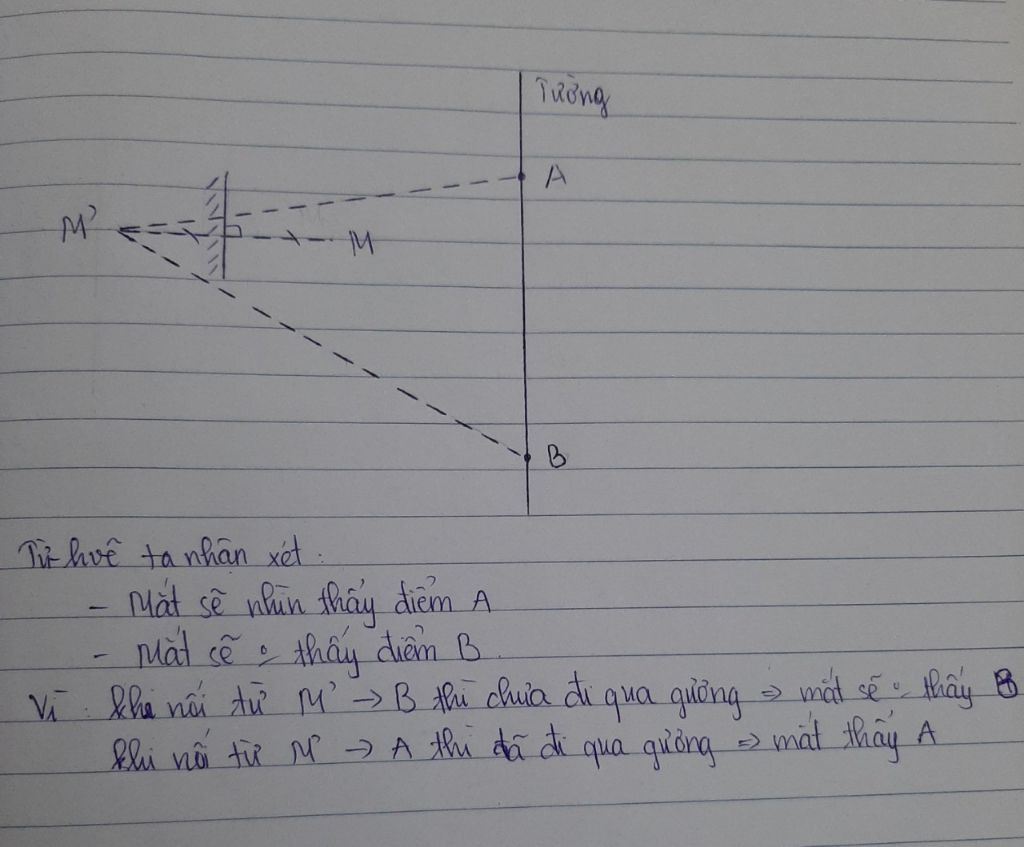 Tường
A
M'
M
B
Từ hvẽ ta nhận xét :
- Mắt sẽ nhìn thấy điểm A
- Mắt sẽ thấy điểm B.
Vì : Khi nối từ M' → B thì chưa đi qua gương ⇒ mắt sẽ thấy B
Khi nối từ M' → A thì đã đi qua gương ⇒ mắt thấy A